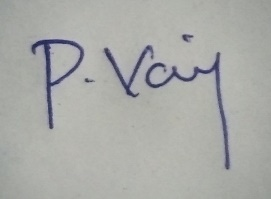 P. Vaij